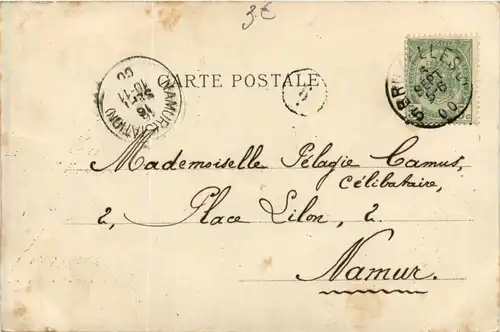 3.€
CARTE POSTALE
NAMUR (STATION)
16
SEPT
10-11
00
Mademoiselle Pélagie Camus,
Célibataire,
2, Place Lilon, 2.
Namur.